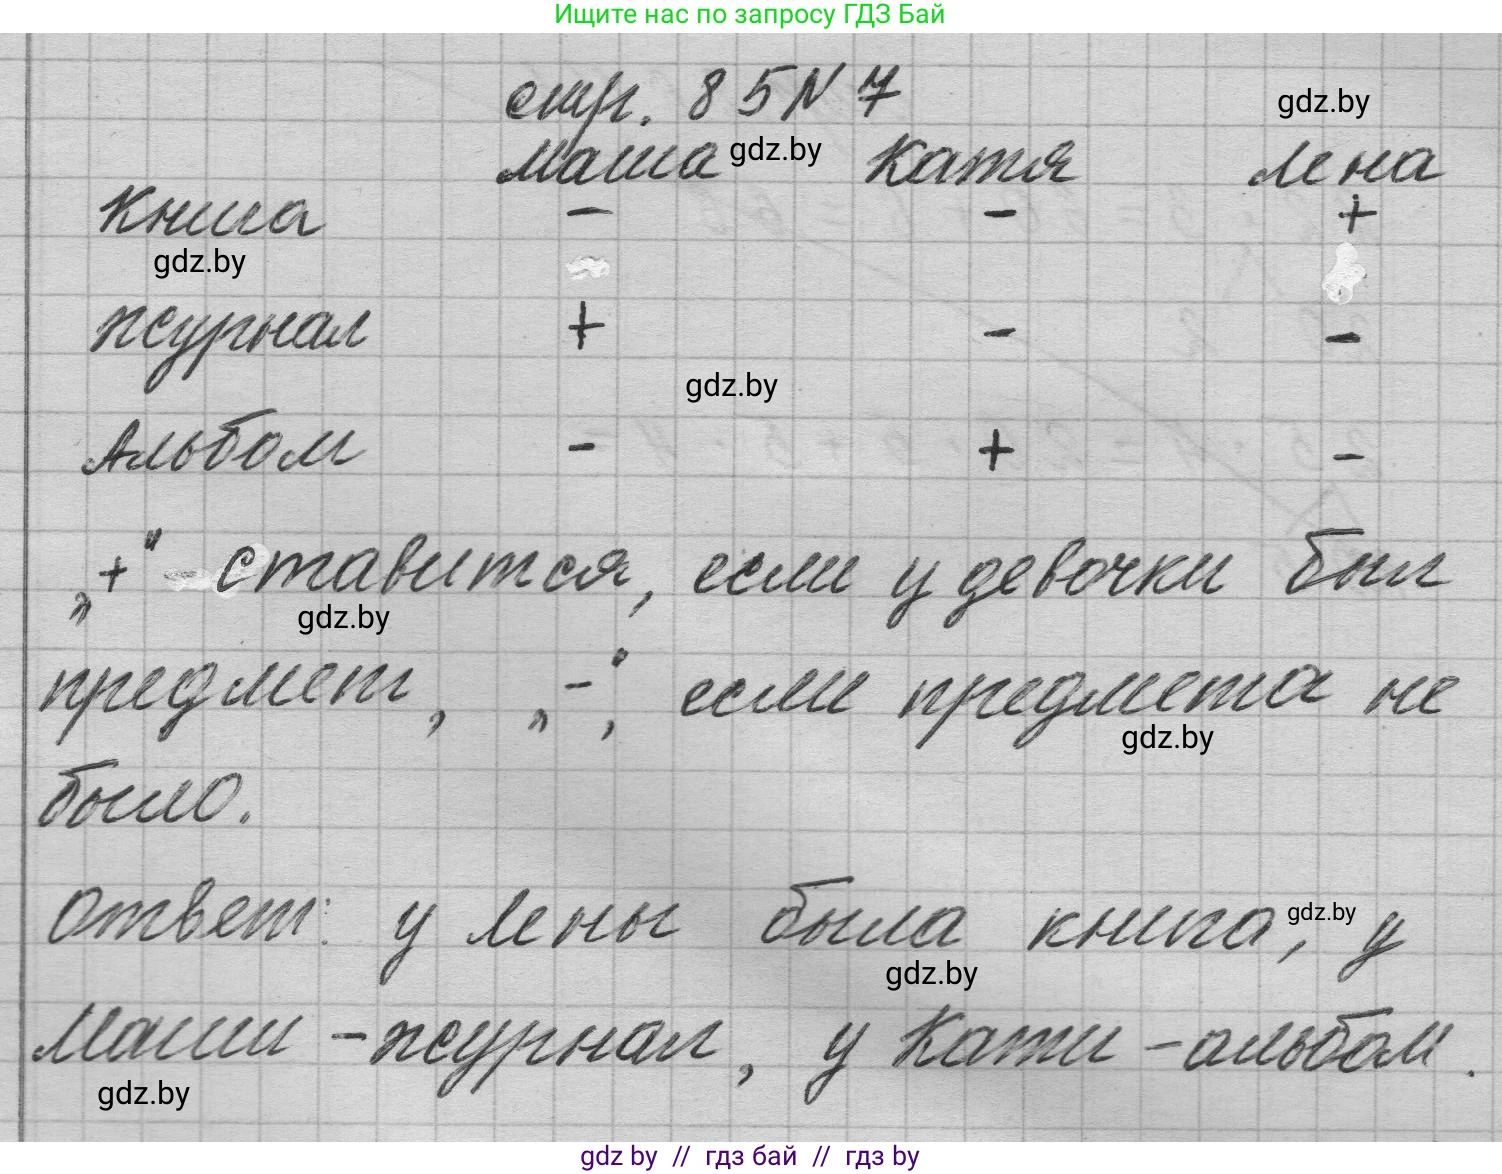 Ищите нас по запросу ГДЗ Бай
стр. 85 N 7
gdz.by
Маша gdz.by Катя Лена
Книга - - +
gdz.by
журнал + - -
gdz.by
Альбом - + -
„+“ - ставится, если у девочки был
gdz.by
предмет, „-“, если предмета не
gdz.by
было.
Ответ: у Лены была книга, gdz.by у
gdz.by
Маши - журнал, у Кати - альбом.
gdz.by
gdz by // гдз бай // гдз by